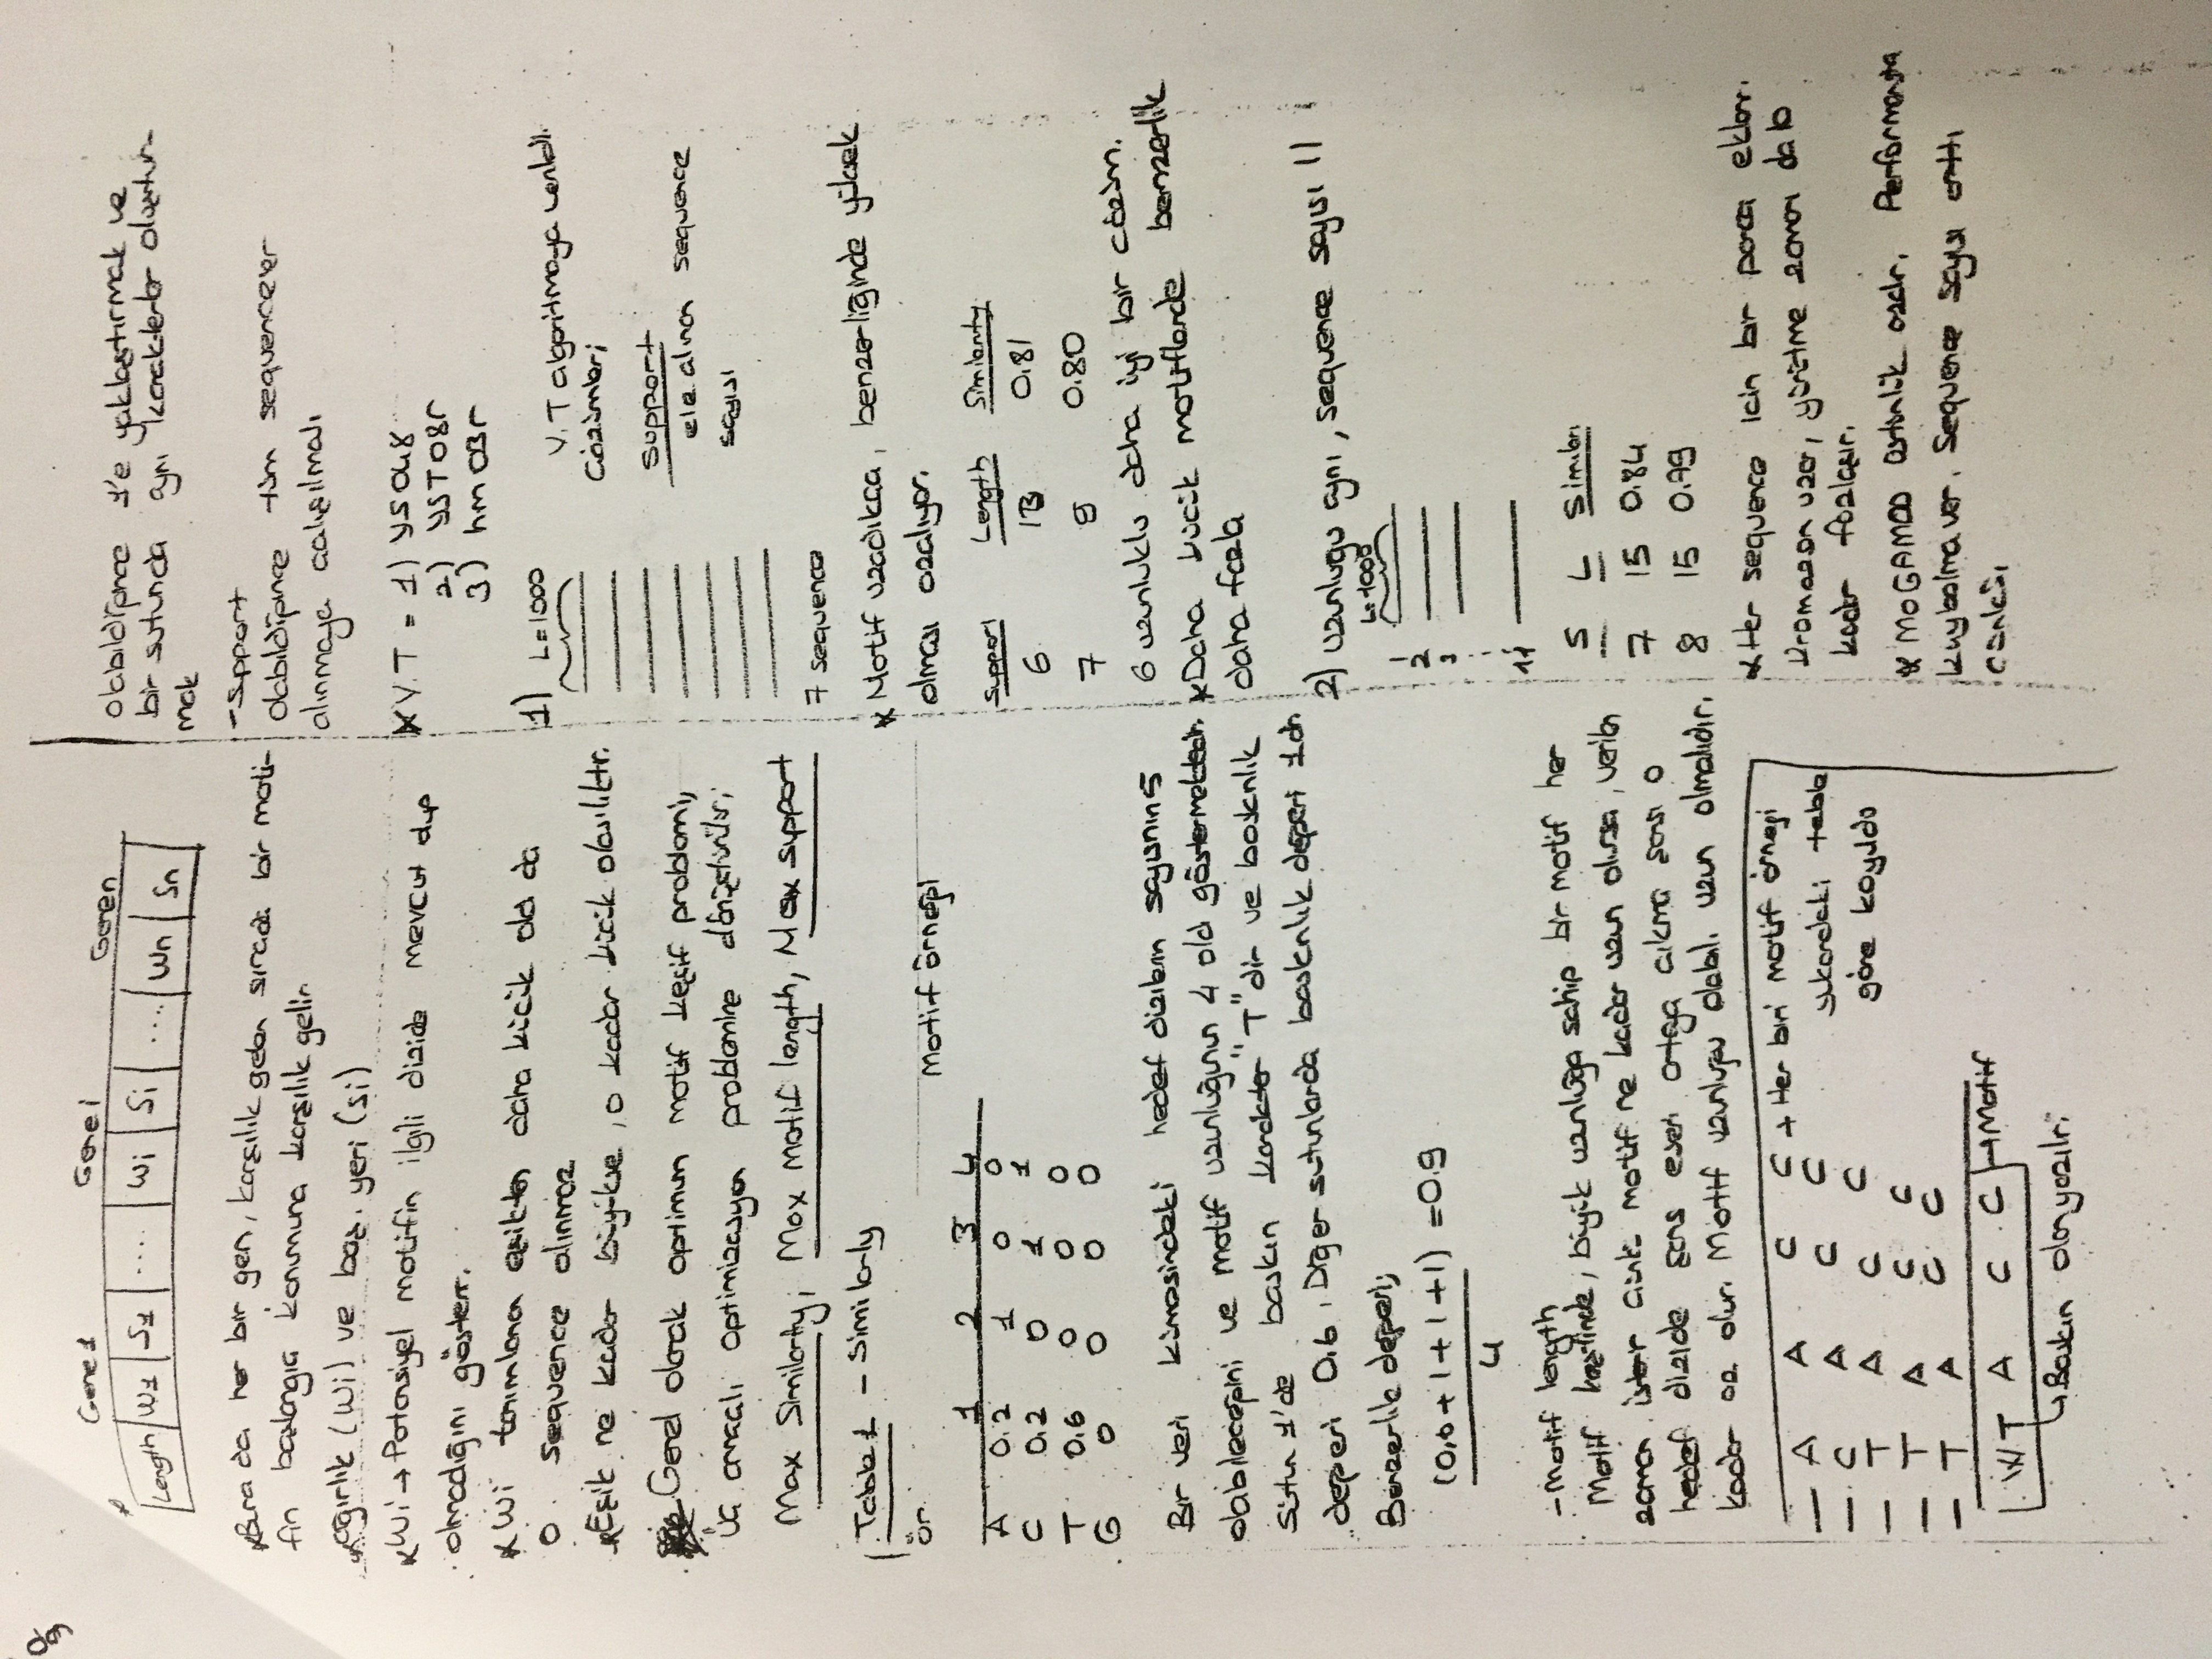 Gene 1 Gene i Gene n
Length W1 S1 .... Wi Si .... Wn Sn
*Burada her bir gen, karşılık gelen sırada bir moti-
fin başlangıç konumuna karşılık gelir
*ağırlık (Wi) ve baş. yeri (Si)
*Wi → Potansiyel motifin ilgili dizide mevcut olup
olmadığını gösterir.
*Wi tanımlanan eşikten daha küçük old da
0. sequence alınmaz
*Eşik ne kadar büyükse, o kadar küçük olasılıktır.
Genel olarak optimum motif keşif problemi,
üç amaçlı optimizasyon problemine dönüştürülür;
Max Similarity; Max motif length, Max support
Table 1 - Similarly
ör. Motif örneği
1 2 3 4
A 0.2 1 0 0
C 0.2 0 1 1
T 0.6 0 0 0
G 0 0 0 0
Bir veri kümesindeki hedef dizilerin sayısının 5
olabileceğini ve motif uzunluğunun 4 old göstermektedir.
Sütun 1'de baskın karakter "T"dir ve baskınlık
değeri 0.6, Diğer sutunlarda baskınlık değeri 1dir
Benzerlik değeri;
(0,6+1+1+1) = 0.9
4
- Motif length
Motif keşfinde, büyük uzunluğa sahip bir motif her
zaman ister çünkü motif ne kadar uzun olursa, verilen
hedef dizide şans eseri ortaya çıkma şansı o
kadar az olur. Motif uzunluğu olabil. uzun olmalıdır.
— A A C C → Her biri motif örneği
— C A C C yukarıdaki tabla
— T A C C göre koyuldu
— T A C C
— T A C C
T A C C → Motif
↳ Baskın olan yazılır.
olabildiğince 1'e yaklaştırmak ve
bir sutunda aynı karakterler oluştur-
mak
- Support
Olabildiğince tüm sequenceler
alınmaya çalışılmalı
*V.T = 1) YS048
2) YST08r
3) hm03r
1) L=1000
V.T algoritmaya verildi.
Çözümler;
Support
ele alınan sequence
sayısı
7 sequence
* Motif uzadıkça, benzerliğinde yüksek
olması azalıyor.
Support Length Similarity
6 13 0.81
7 9 0.80
6 uzunluklu daha iyi bir çözüm.
*Daha küçük motiflerde benzerlik
daha fazla
2) uzunlugu aynı, sequence sayısı 11
L=1000
1
2
3
11
S L Similari
7 15 0.84
8 15 0.79
*Her sequence için bir parça eklenir.
Kromozon uzar, yürütme zamanı da o
kadar fazlaşır.
* MOGAMOD üstünlük azalır. Performansta
kaybolma var. Sequence sayısı arttı
çünkü,